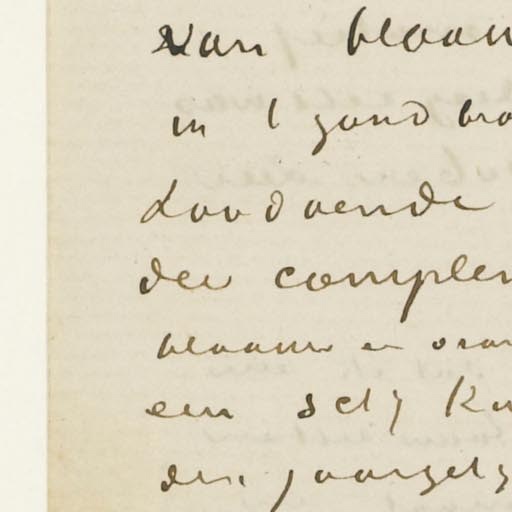 van blaauw
in 't goud bro
daardoende
der complem
blaauw en oran
een setj Ku
der jaargety